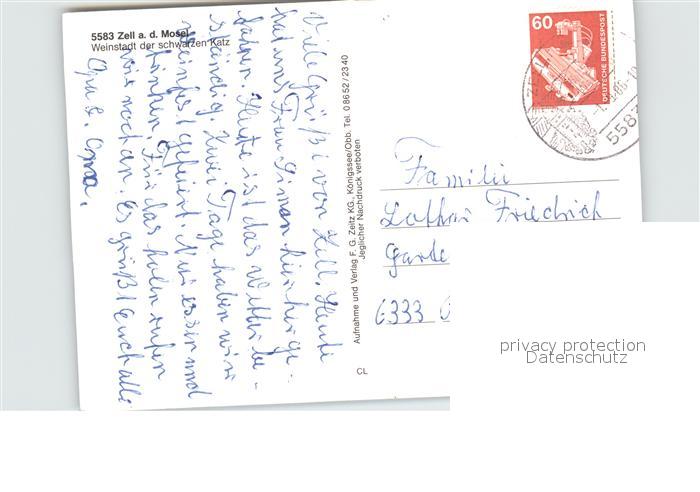 5583 Zell a. d. Mosel
Weinstadt der schwarzen Katz
Viele Grüße von Zell. Heute
hat uns Frau Simon hierherge-
fahren. Heute ist das Wetter be-
ständig. Zwei Tage haben wir
Weinfest gefeiert.
Für das holen rufen
wir noch an. Es grüßt Euch alle
Opa u. Oma.
Aufnahme und Verlag F. G. Zeitz KG., Königssee/Obb. Tel. 0 86 52 / 23 40
Jeglicher Nachdruck verboten
CL
60
DEUTSCHE BUNDESPOST
5583
Familie
Lothar Friedrich
Garte
6333
privacy protection
Datenschutz